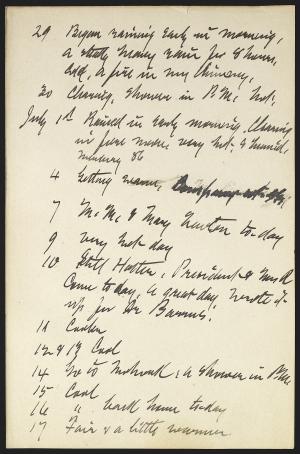 29 Began raining early in morning,
a steady heavy rain for 8 hours,
cold, a fire in my chimney,
30 Clearing, shower in P.M. hot.
July 1st Rained in early morning, Clearing
in fore noon, very hot & humid,
mercury 86
4 Getting warm,
7 Mr. Mc & Mary Newton to-day
9 very hot day
10 Still Hotter, President & Mrs H
Come to day, a great day, wrote it
up for Dr Barrus.
11 Cooler
12 & 13 Cool
14 Go to Mohonk, a shower in P.M.
15 Cool
16 " back home today
17 Fair & a little warmer